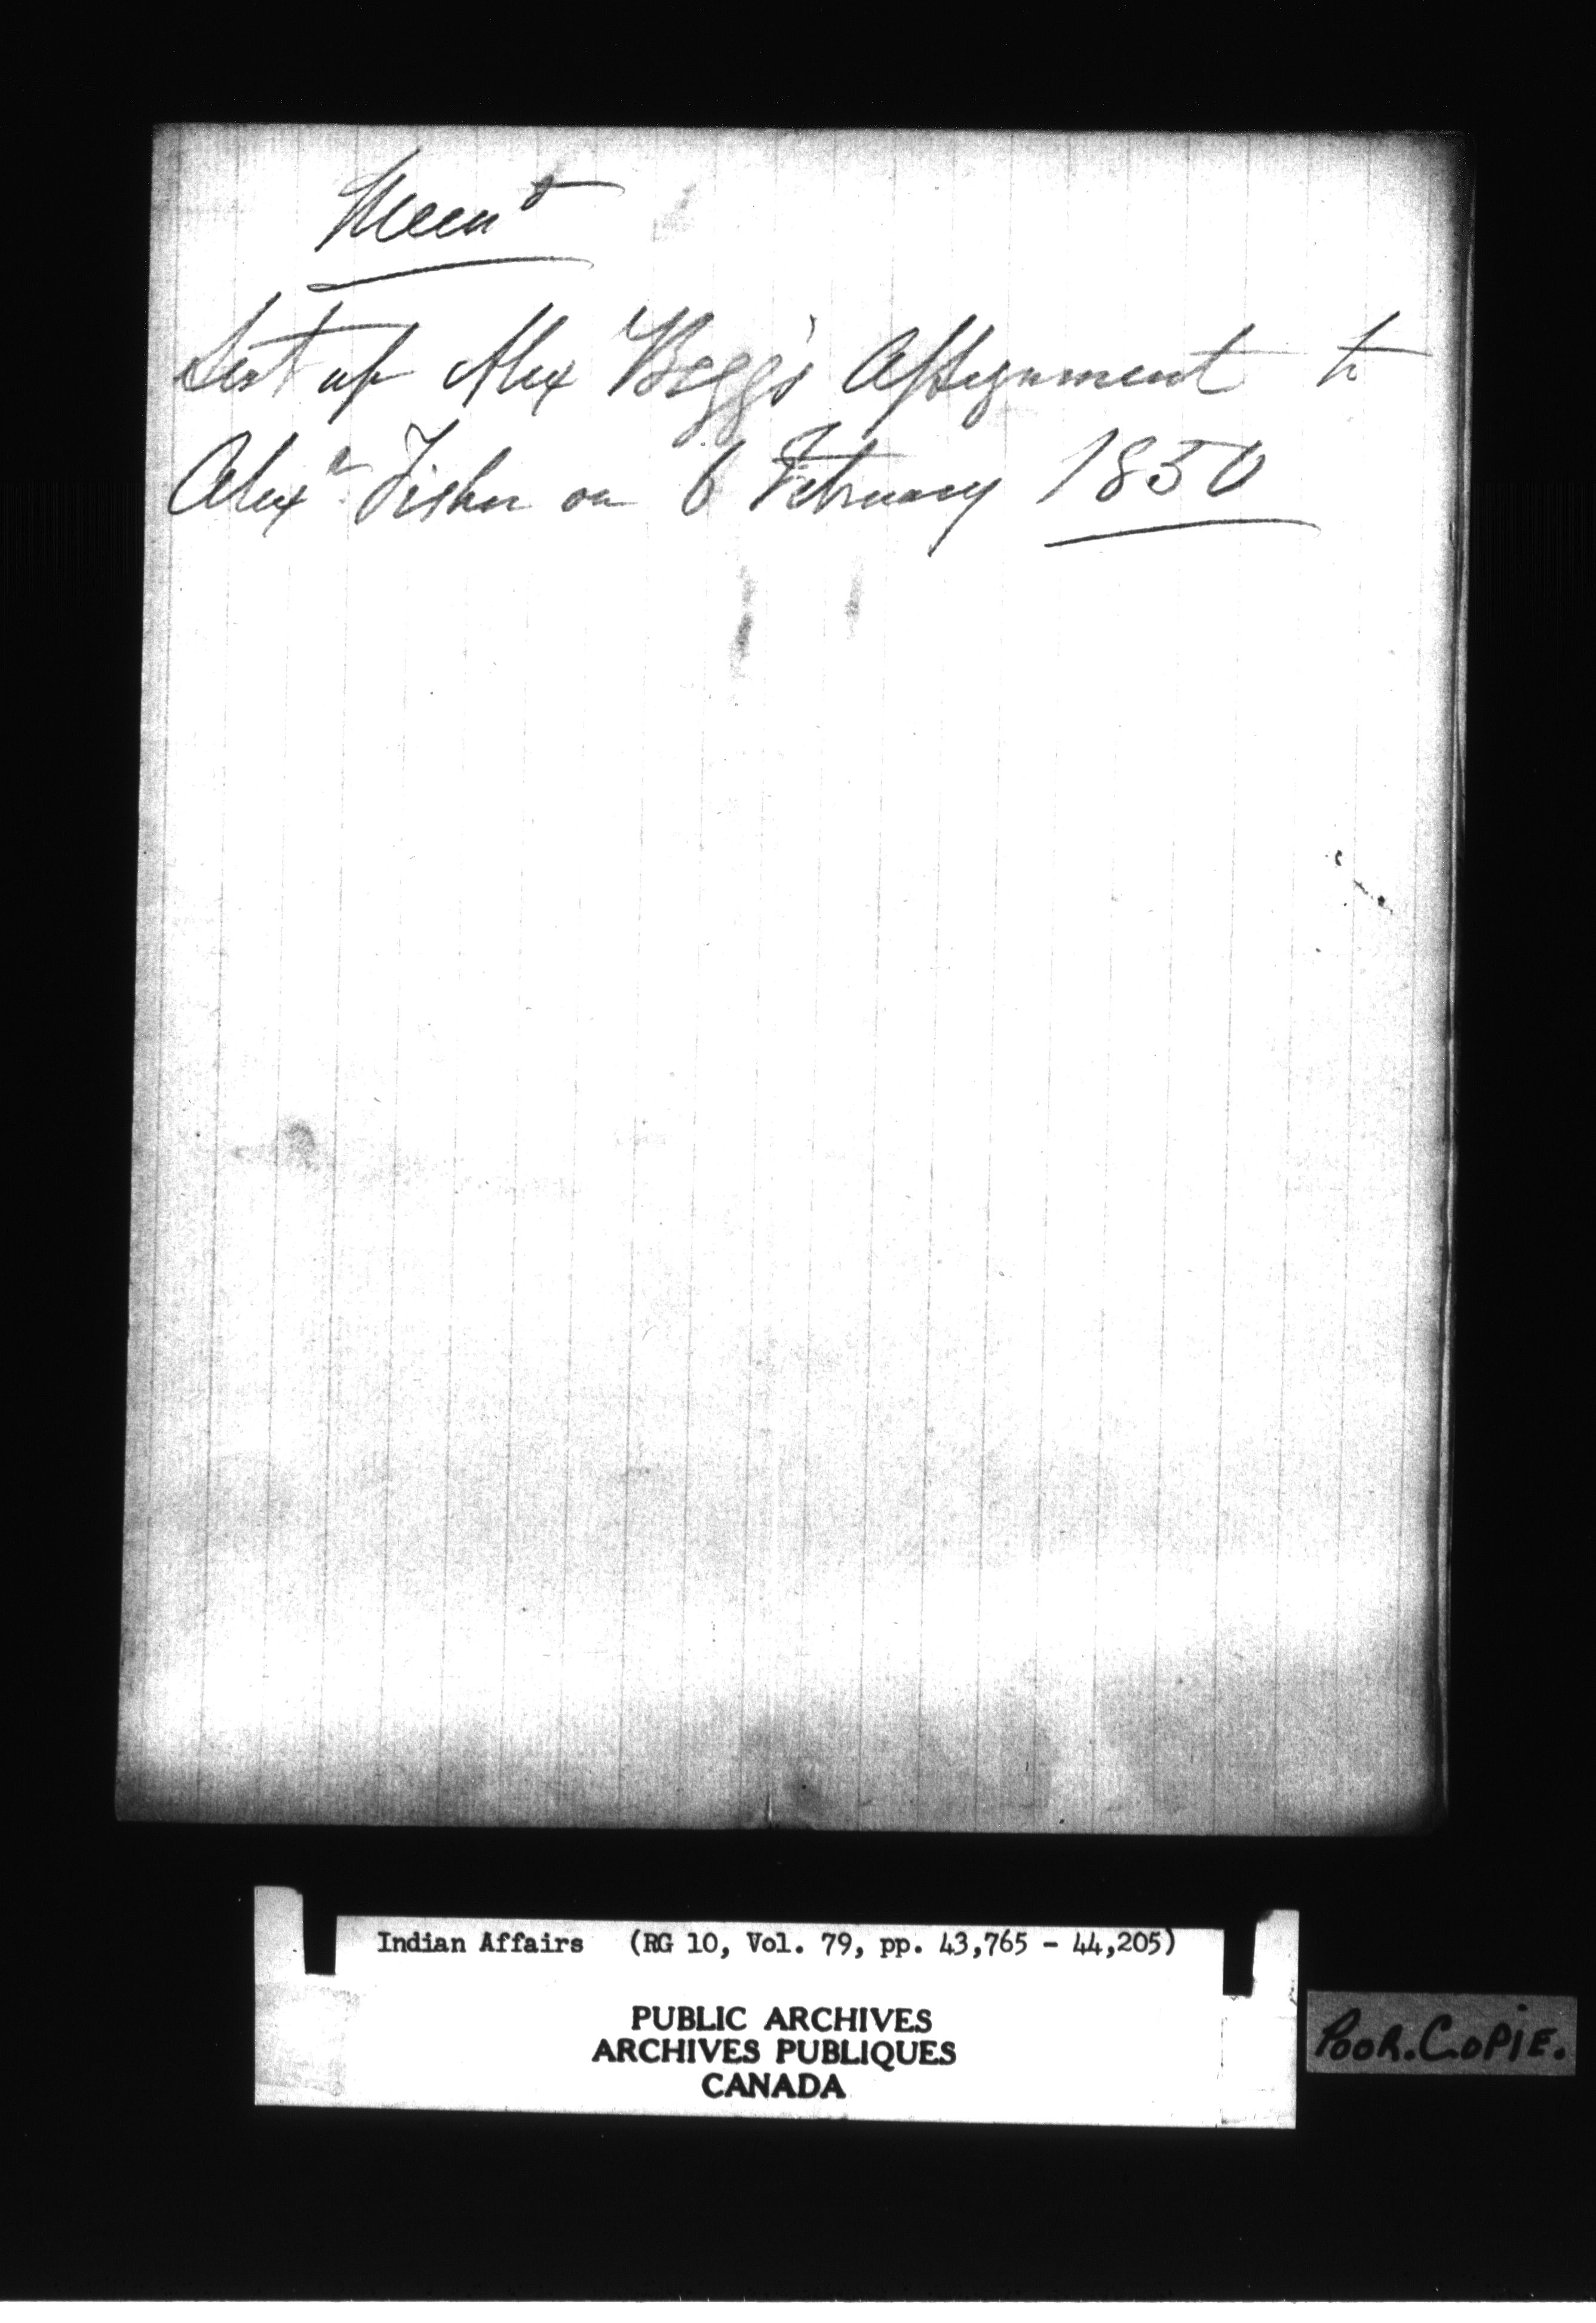 Mem^o
Sent up Alex Begg's Assignment to
Alex^r Fisher on 6 February 1850
Indian Affairs (RG 10, Vol. 79, pp. 43,765 - 44,205)
PUBLIC ARCHIVES
ARCHIVES PUBLIQUES
CANADA
POOR.COPIE.